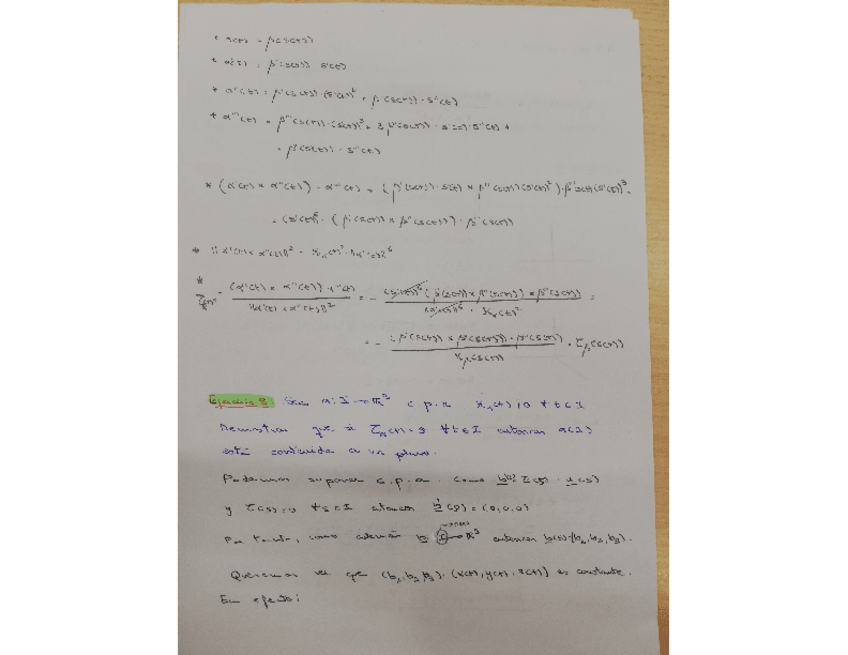 * α(t) = β(s(t))
* α'(t) = β'(s(t)) · s'(t)
* α''(t) = β''(s(t)) · (s'(t))² + β'(s(t)) · s''(t)
* α'''(t) = β'''(s(t)) · (s'(t))³ + 3β''(s(t)) · s'(t) · s''(t) +
+ β'(s(t)) · s'''(t)
* (α'(t) × α''(t)) · α'''(t) = (β'(s(t)) · s'(t) × β''(s(t))(s'(t))²) · β'''(s(t))(s'(t))³ =
= (s'(t))⁶ · (β'(s(t)) × β''(s(t))) · β'''(s(t))
* ||α'(t) × α''(t)||² = κα(t)² · ||α'(t)||⁶
* τα(t) = - (α'(t) × α''(t)) · α'''(t) / ||α'(t) × α''(t)||² = - (s'(t))⁶ (β'(s(t)) × β''(s(t))) · β'''(s(t)) / (s'(t))⁶ · κα(t)² =
= - (β'(s(t)) × β''(s(t))) · β'''(s(t)) / κβ(s(t)) = τβ(s(t))
Ejercicio 8: Sea α: I → R³ c.p.a κα(t) > 0 ∀t ∈ I
Demostrar que si τα(t) = 0 ∀t ∈ I entonces α(I)
está contenida a un plano.
Podemos suponer c.p.a. como b' = τ(s) · n(s)
y τ(s) = 0 ∀s ∈ I entonces b'(s) = (0,0,0)
Por tanto, como además b: I → R³ entonces b(s) = (b₁, b₂, b₃).
Queremos ver que (b₁, b₂, b₃) · (x(t), y(t), z(t)) es constante.
En efecto: